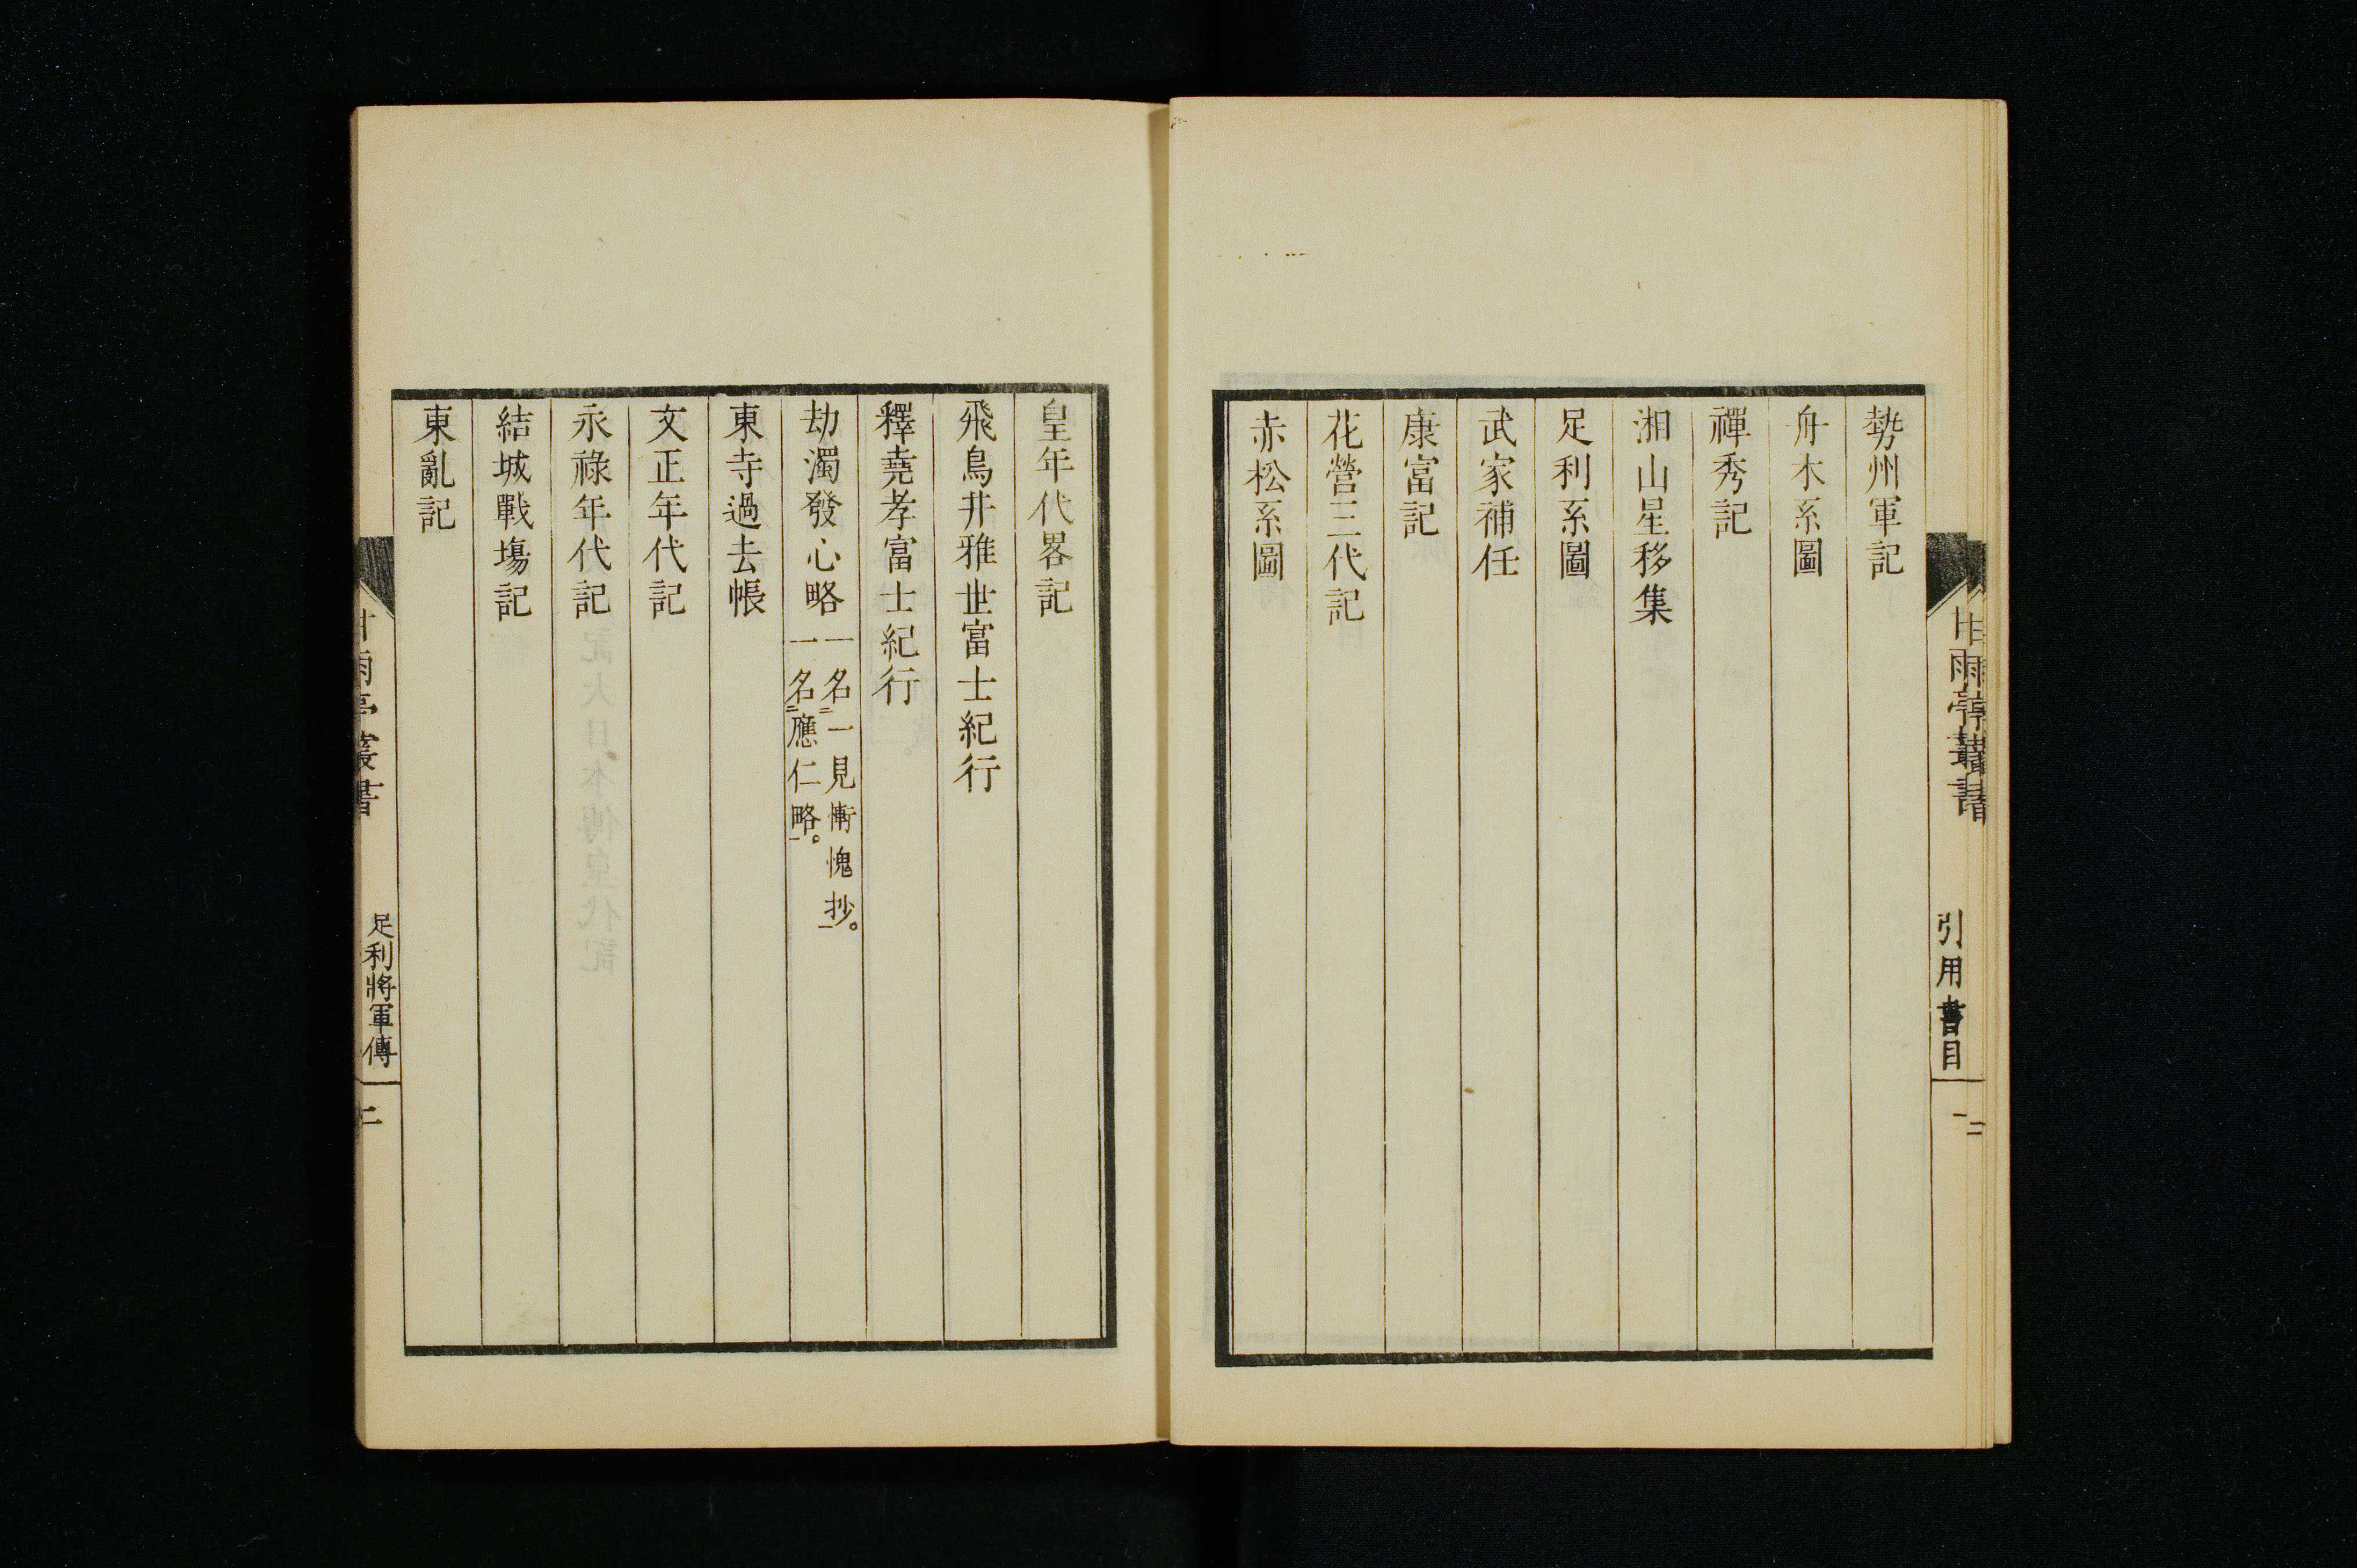 甘雨亭叢書
引用書目
勢州軍記
舟木系圖
禪秀記
湘山星移集
足利系圖
武家補任
康富記
花營三代記
赤松系圖
皇年代畧記
飛鳥井雅世富士紀行
釋堯孝富士紀行
劫濁發心略
一名二一見慚愧抄一。
一名二應仁略一。
東寺過去帳
文正年代記
永祿年代記
結城戰塲記
東亂記
甘雨亭叢書
足利將軍傳
二